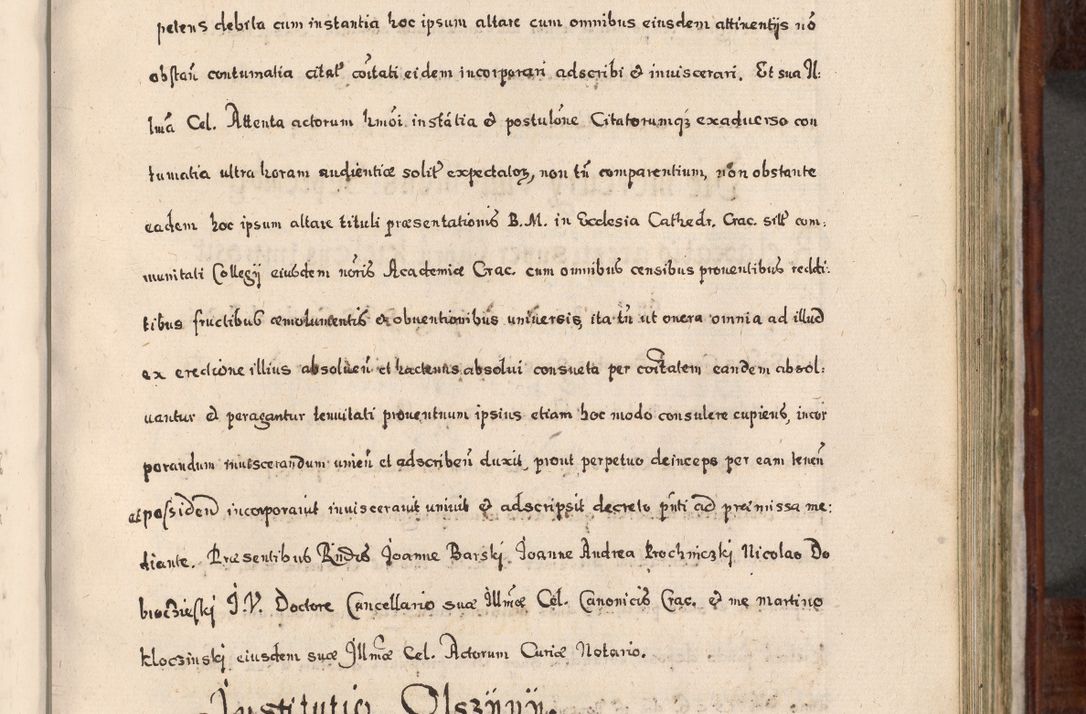 petens debita cum instantia hoc ipsum altare cum omnibus eiusdem attinentijs nõ
obstañ contumatia citať cõitati eidem incorporari adscribi et inuiscerari. Et sua Il:
lmã Cel. Attenta actorum hmõi instãtia et postulõne Citatorumq3 exaduerso con
tumatia ultra horam audientiæ solit expectatoꝝ, non tñ comparentium, non obstante
eadem hoc ipsum altare tituli præsentationis B. M. in Ecclesia Cathedr. Crac. sitt com:
munitati Collegij eiusdem nõris Academiæ Crac. cum omnibus censibus prouentibus reddi:
tibus fructibus æmolumentis et obuentionibus uniuersis, ita tñ ut onera omnia ad illud
ex erectione illius absolueñ et hactenus absolui consueta per cõitatem eandem absol:
uantur et peragantur tenuitati prouentuum ipsius etiam hoc modo consulere cupiens, incor
porandum inuiscerandum unieñ et adscribeñ duxit, prout perpetuo deinceps per eam teneñ
et possideñ incorporauit inuiscerauit uniuit et adscripsit decreto pñti ad præmissa me:
diante. Præsentibus Rñdis Joanne Barski Joanne Andrea Prochniczki Nicolao Do
broczieski J. V. Doctore Cancellario suæ Illmæ Cel. Canonicis Crac. et me Martino
Kloczinski eiusdem suæ Illmæ Cel. Actorum Curiæ Notario.
Institutio Olszÿnÿ.